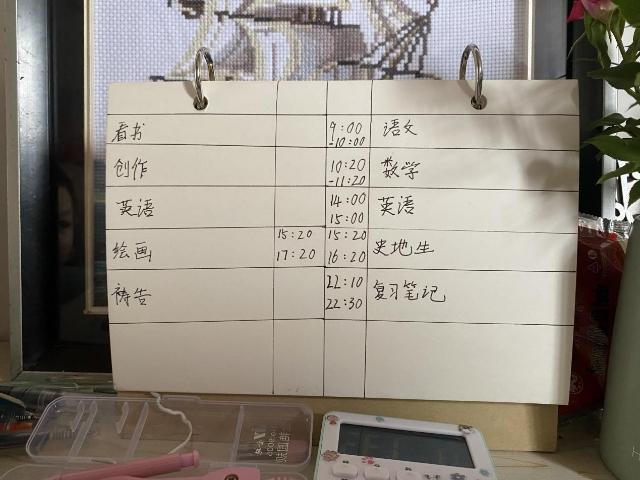 看书 9:00 -10:00 语文
创作 10:20 -11:20 数学
英语 14:00 15:00 英语
绘画 15:20 17:20 15:20 16:20 史地生
祷告 22:10 22:30 复习笔记